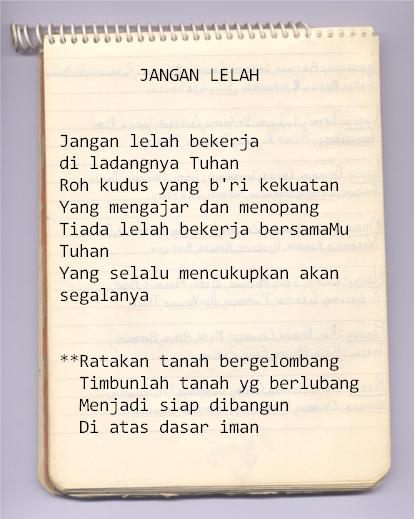 JANGAN LELAH
Jangan lelah bekerja
di ladangnya Tuhan
Roh kudus yang b'ri kekuatan
Yang mengajar dan menopang
Tiada lelah bekerja bersamaMu
Tuhan
Yang selalu mencukupkan akan
segalanya
**Ratakan tanah bergelombang
Timbunlah tanah yg berlubang
Menjadi siap dibangun
Di atas dasar iman